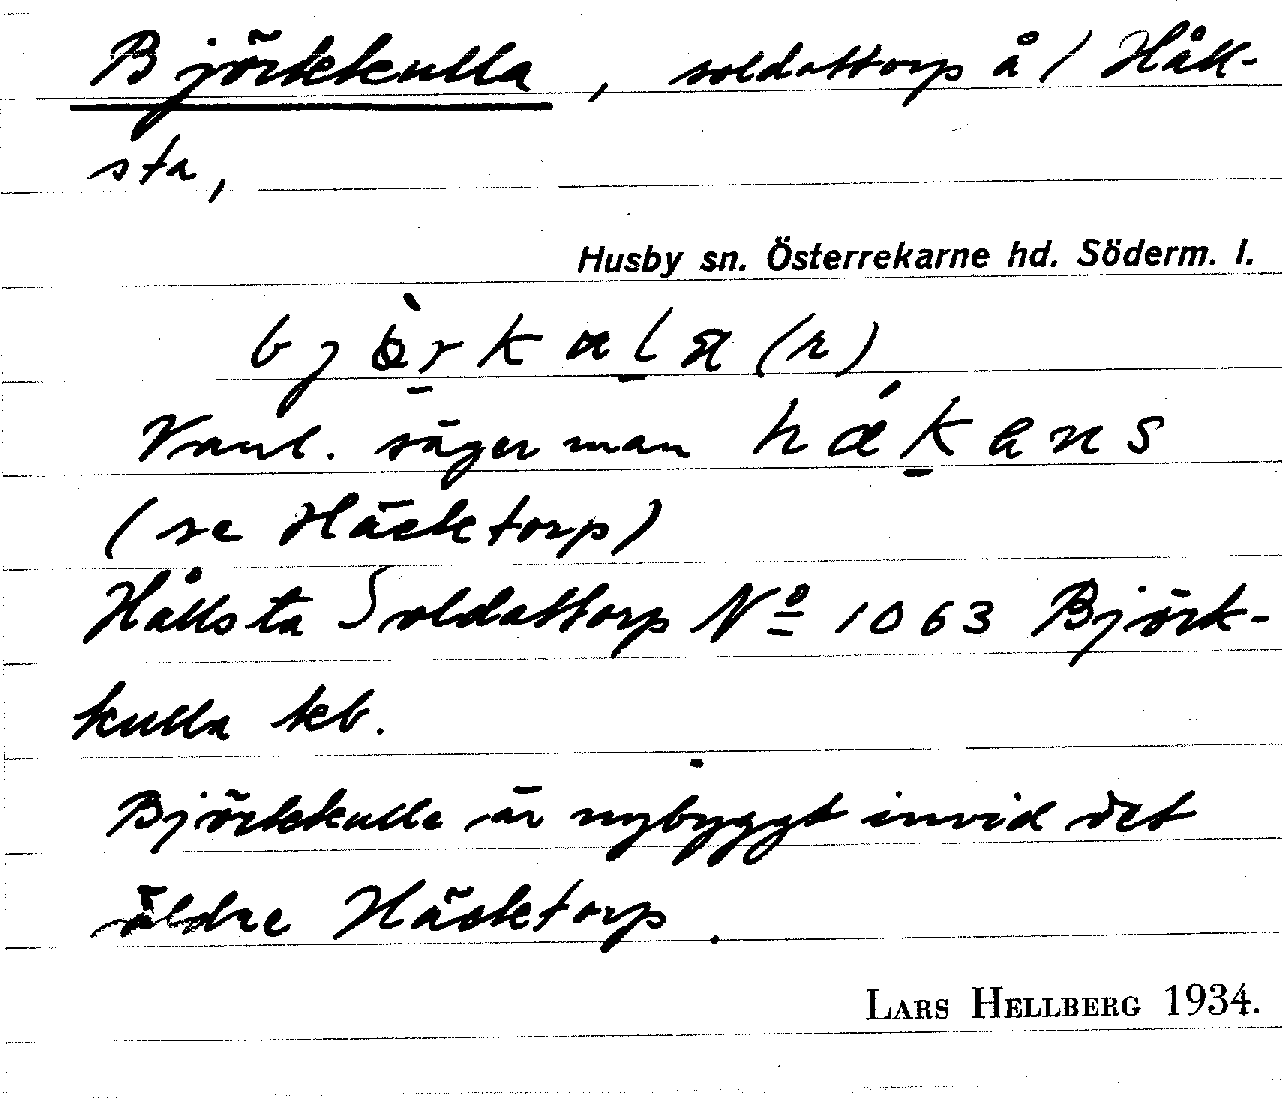 Björkkulla, soldattorp å / Håll-
sta,
Husby sn. Österrekarne hd. Söderm. l.
bjö̀rkala(n)
Vanl. säger man hákans
(se Häcktorp)
Hållsta Soldattorp Nº 1063 Björk-
kulla kb.
Björkkulla är nybyggt invid det
äldre Häcktorp.
LARS HELLBERG 1934.